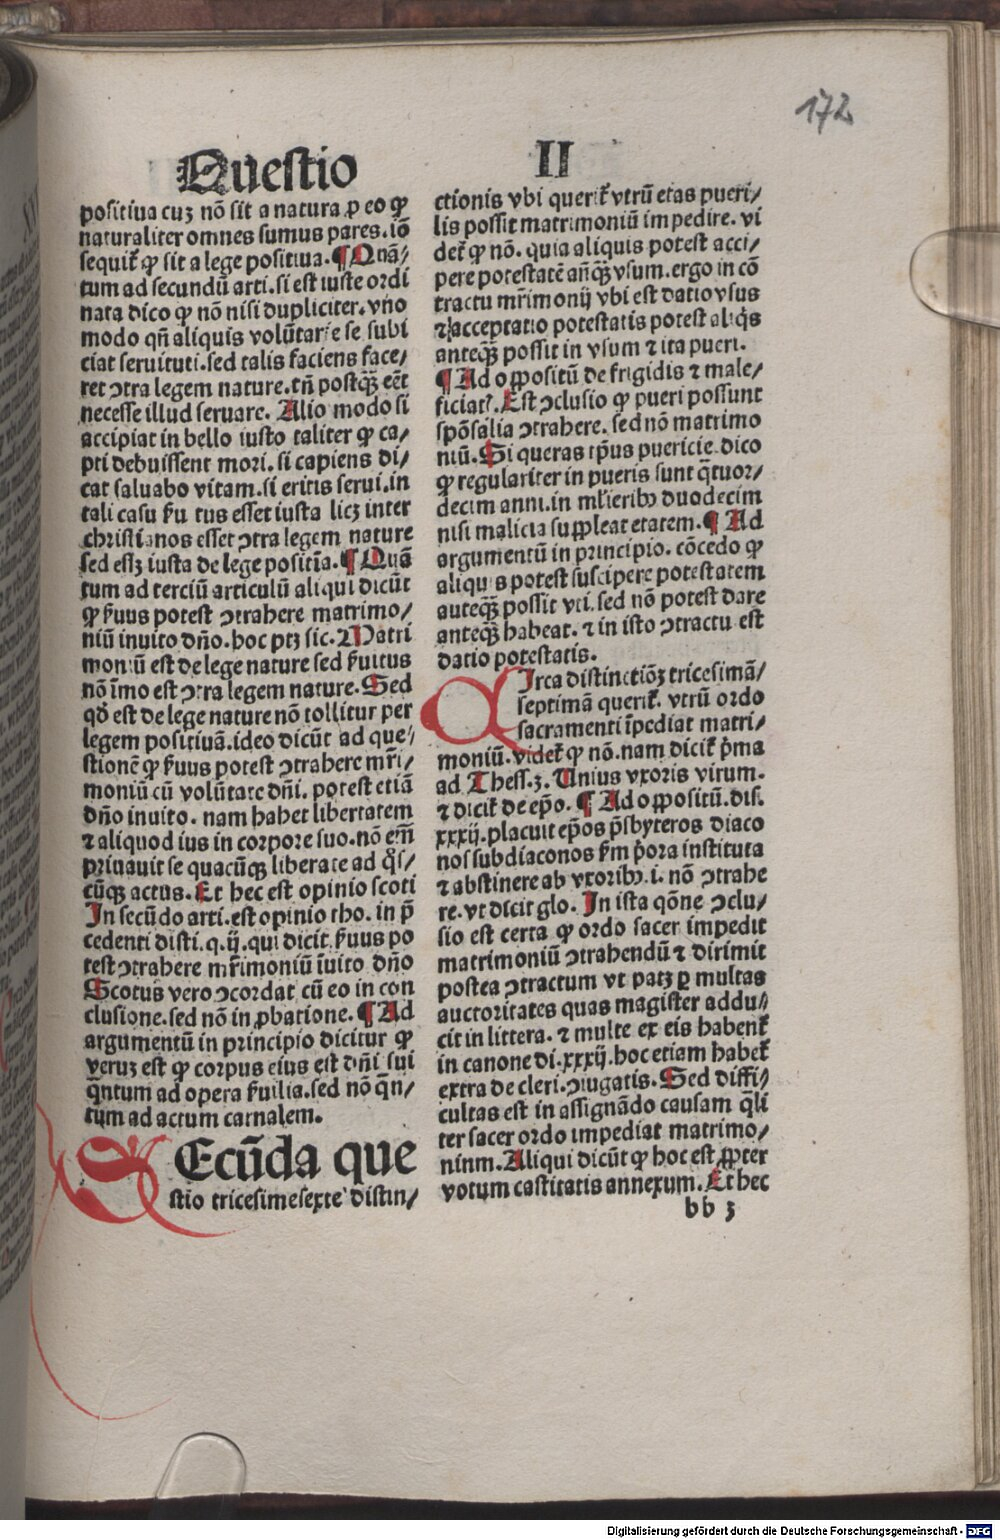 172
Questio II
positiua cuȝ nō sit a natura ꝑ eo ꝙ
naturaliter omnes sumus pares. iō
sequit᷑ ꝙ sit a lege positiua. ¶ Quā/
tum ad secundū arti. si est iuste ordi
nata dico ꝙ nō nisi dupliciter. vno
modo qñ aliquis volūtarie se subi
ciat seruituti. sed talis faciens face/
ret ↄtra legem nature. tñ postqȝ eēt
necesse illud seruare. Alio modo si
accipiat in bello iusto taliter ꝙ ca/
pti debuissent mori. si capiens di/
cat saluabo vitam. si eritis serui. in
tali casu ẜuitus esset iusta licȝ inter
christianos esset ↄtra legem nature
sed esȝ iusta de lege positia. ¶ Quā
tum ad terciū articulū aliqui dicūt
ꝙ ẜuus potest ↄtrahere matrimo/
niū inuito dño. hoc ptȝ sic. Matri
moniū est de lege nature sed ẜuitus
nō īmo est ↄtra legem nature. Sed
qd̓ est de lege nature nō tollitur per
legem positiuā. ideo dicūt ad que/
stionē ꝙ ẜuus potest ↄtrahere mr̄i/
moniū cū volūtate dñi. potest etiā
dño inuito. nam habet libertatem
⁊ aliquod ius in corpore suo. nō em̄
priuauit se quacūqȝ liberate ad q̇s/
cūqȝ actus. Et hec est opinio scoti
In secūdo arti. est opinio tho. in p̄
cedenti disti. q. ij. qui dicit ẜuus po
test ↄtrahere mr̄imoniū īuito dño
Scotus vero ↄcordat cū eo in con
clusione. sed nō in ꝓbatione. ¶ Ad
argumentū in principio dicitur ꝙ
veruȝ est ꝙ corpus eius est dñi sui
q̄ntum ad opera ẜuilia. sed nō q̄n/
tum ad actum carnalem.
SEcūda que
stio tricesimesexte distin/
ctionis vbi querit᷑ vtrū etas pueri/
lis possit matrimoniū impedire. vi
det᷑ ꝙ nō. quia aliquis potest acci/
pere potestatē añqȝ vsum. ergo in cō
tractu mr̄imonij vbi est datio vsus
⁊ acceptatio potestatis potest aliq̇s
anteqȝ possit in vsum ⁊ ita pueri.
¶ Ad oppositū de frigidis ⁊ male/
ficiatꝭ. Est ↄclusio ꝙ pueri possunt
spōsalia ↄtrahere. sed nō matrimo
niū. Si queras tp̄us puericie. dico
ꝙ regulariter in pueris sunt q̄tuor/
decim anni. in ml̓ieribꝫ duodecim
nisi malicia suppleat etatem. ¶ Ad
argumentū in principio. cōcedo ꝙ
aliquis potest suscipere potestatem
auteqȝ possit vti. sed nō potest dare
anteqȝ habeat. ⁊ in isto ↄtractu est
datio potestatis.
CIrca distinctionȝ tricesimā/
septimā querit᷑. vtrū ordo
sacramenti īpediat matri/
moniū. videt᷑ ꝙ nō. nam dicit᷑ p̄ma
ad Thess. 3. Unius vxoris virum.
⁊ dicit᷑ de ep̄o. ¶ Ad oppositū. dis.
xxxij. placuit ep̄os p̄sbyteros diaco
nos subdiaconos ẜm p̓ora instituta
⁊ abstinere ab vxoribꝫ. i. nō ↄtrahe
re. vt dicit glo. In ista qōne ↄclu/
sio est certa ꝙ ordo sacer impedit
matrimoniū ↄtrahendū ⁊ dirimit
postea ↄtractum vt patȝ ꝑ multas
auctoritates quas magister addu/
cit in littera. ⁊ multe ex eis habent᷑
in canone di. xxxij. hoc etiam habet᷑
extra de cleri. ↄiugatis. Sed diffi/
cultas est in assignādo causam q̄li
ter sacer ordo impediat matrimo/
ninm. Aliqui dicūt ꝙ hoc est ꝓpter
votum castitatis annexum. Et hec
bb 3
Digitalisierung gefördert durch die Deutsche Forschungsgemeinschaft - DFG